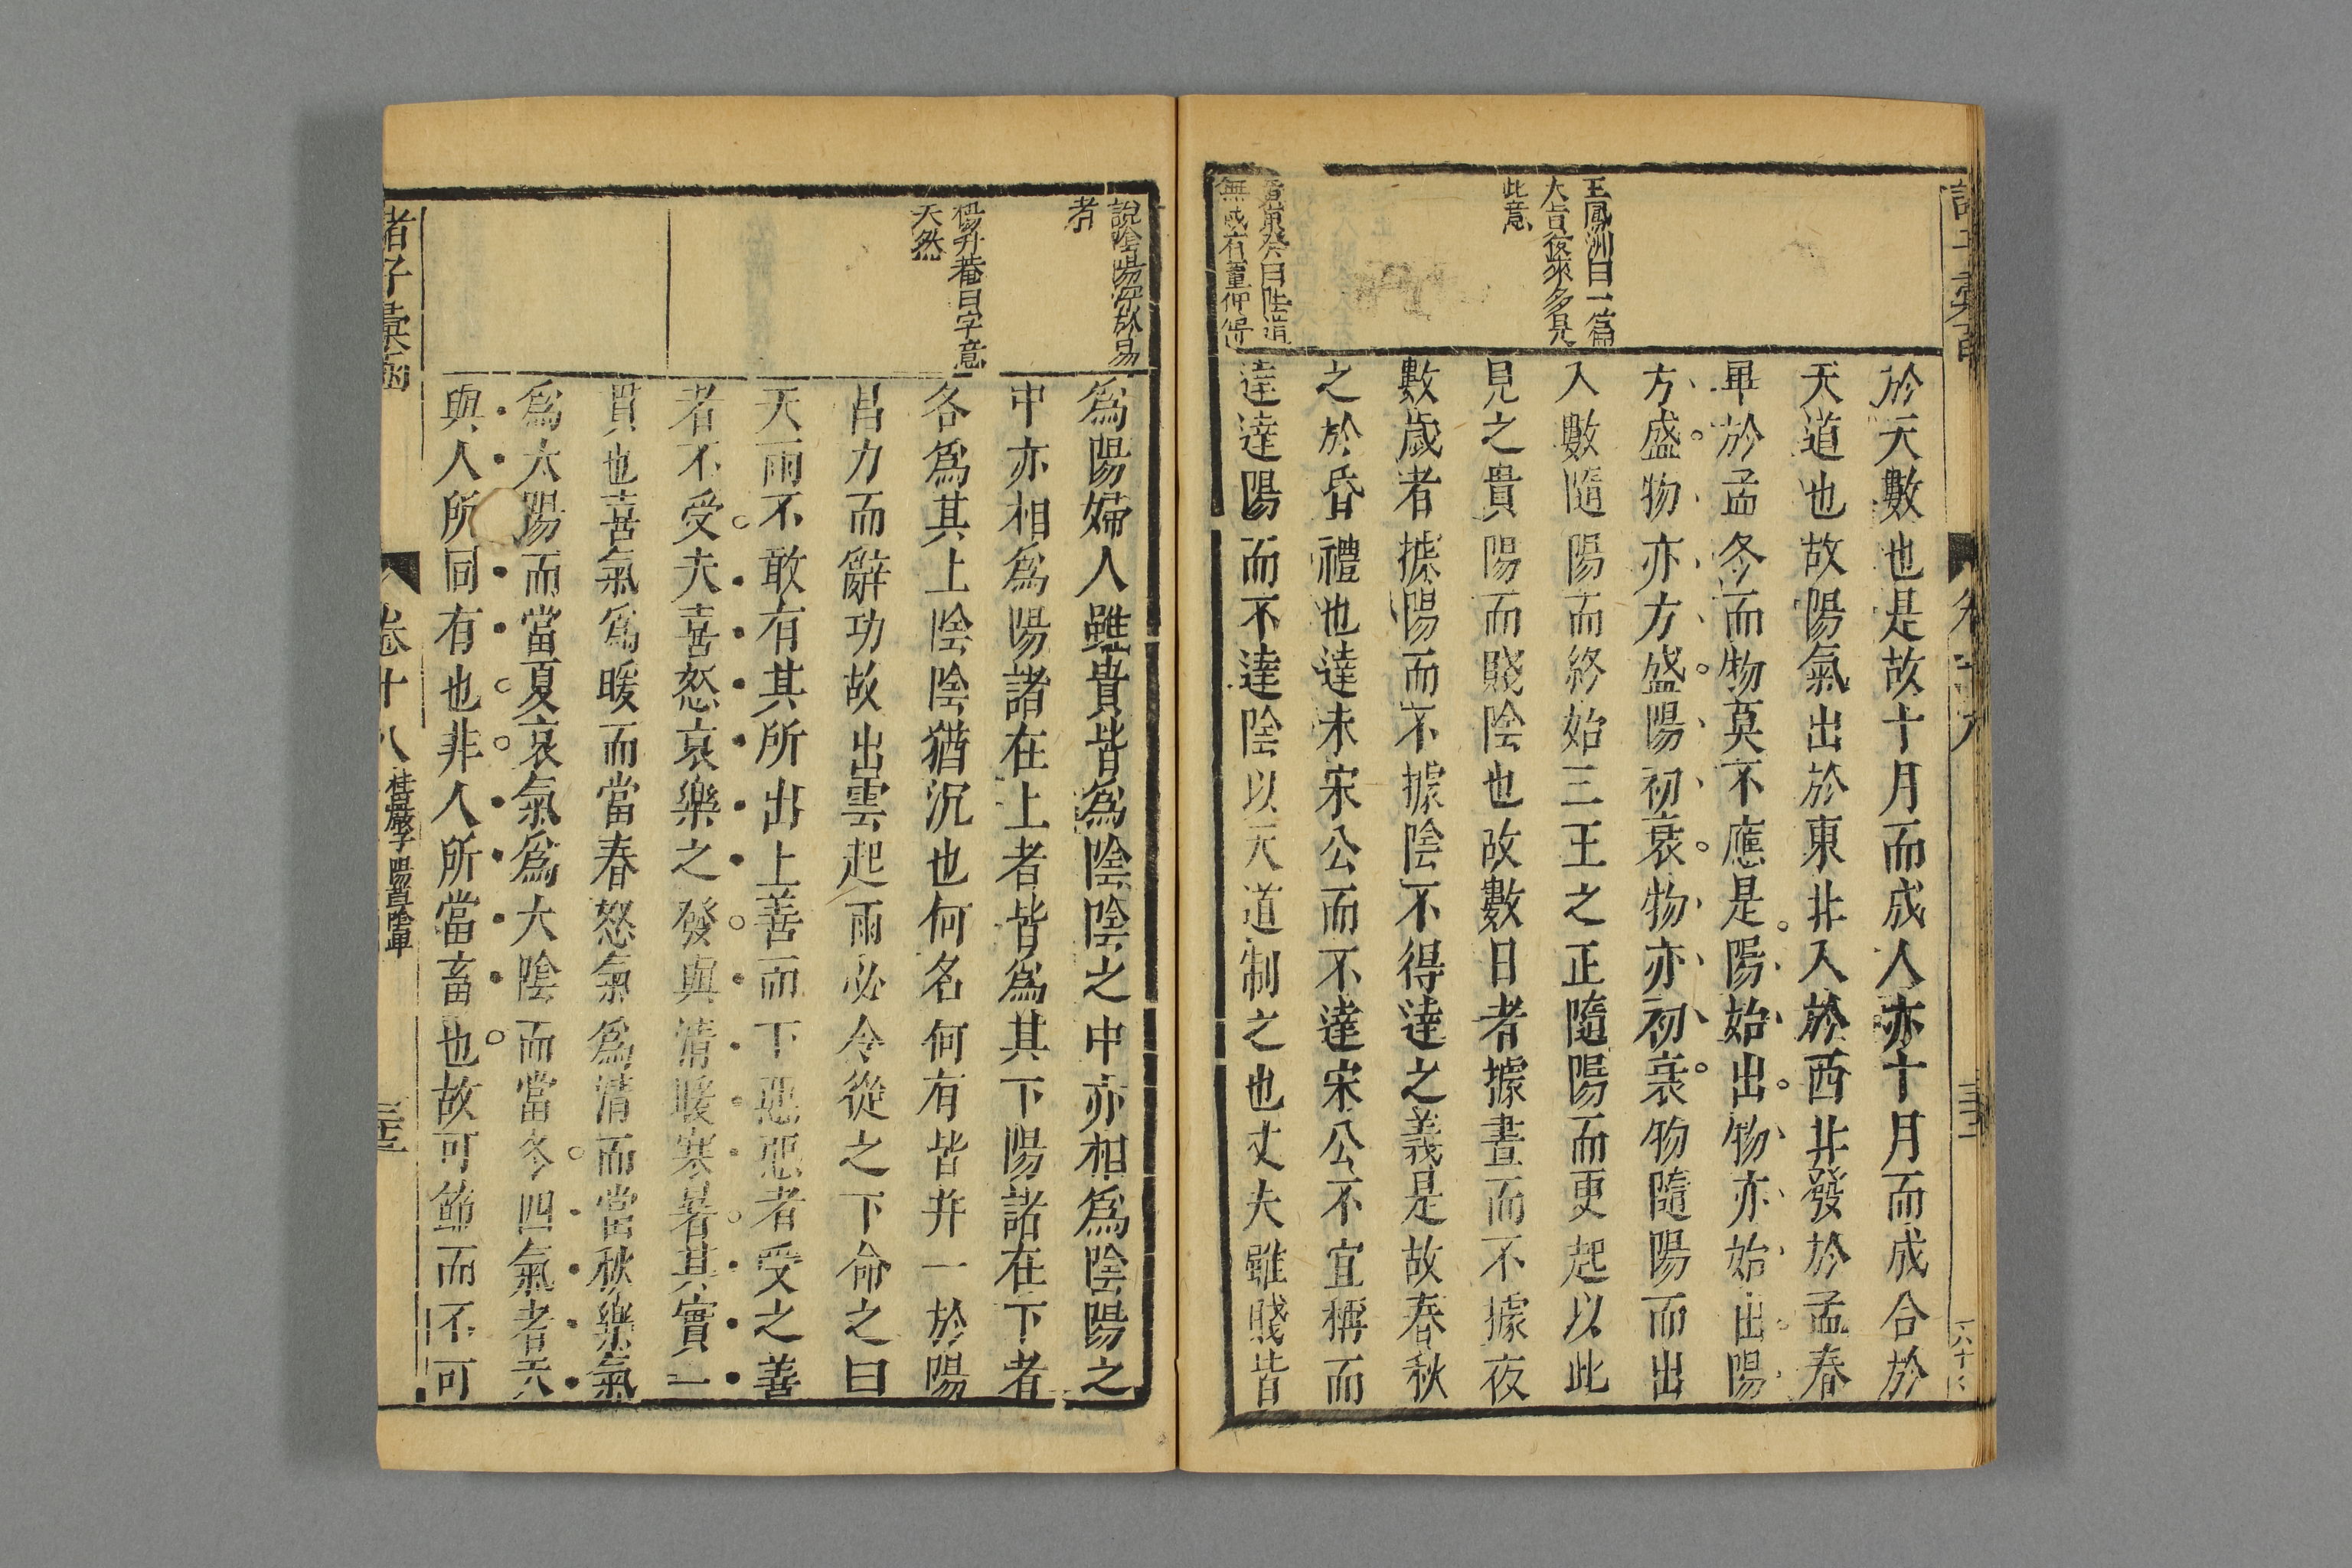 於天數也是故十月而成人亦十月而成合於
天道也故陽氣出於東北入於西北發於孟春
畢於孟冬而物莫不應是陽始出物亦始出陽
方盛物亦方盛陽初衰物亦初衰物隨陽而出
入數隨陽而終始三王之正隨陽而更起以此
見之貴陽而賤陰也故數日者據晝而不據夜
數歲者據陽而不據陰不得達之義是故春秋
之於昏禮也達未宋公而不達宋公不宜稱而
達達陽而不達陰以天道制之也丈夫雖賤皆
王鳳洲曰一篇
大旨後來多見
此意
曰陰道
無 有董仲舒
爲陽婦人雖貴皆爲陰陰之中亦相爲陰陽之
中亦相爲陽諸在上者皆爲其下陽諸在下者
各爲其上陰陰猶沉也何名何有皆并一於陽
昌力而辭功故出雲起雨必令從之下命之曰
天雨不敢有其所出上善而下惡惡者受之善
者不受夫喜怒哀樂之發與清暖寒暑其實一
貫也喜氣爲暖而當春怒氣爲清而當秋樂氣
爲太陽而當夏哀氣爲大陰而當冬四氣者天
與人所同有也非人所當畜也故可節而不可
說陰陽深於易
者
楊升菴曰字意
天然
諸子彙函
卷十八
桂巖子 陽尊陰卑
三十三